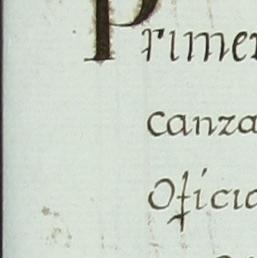 Primer
canza
Oficia